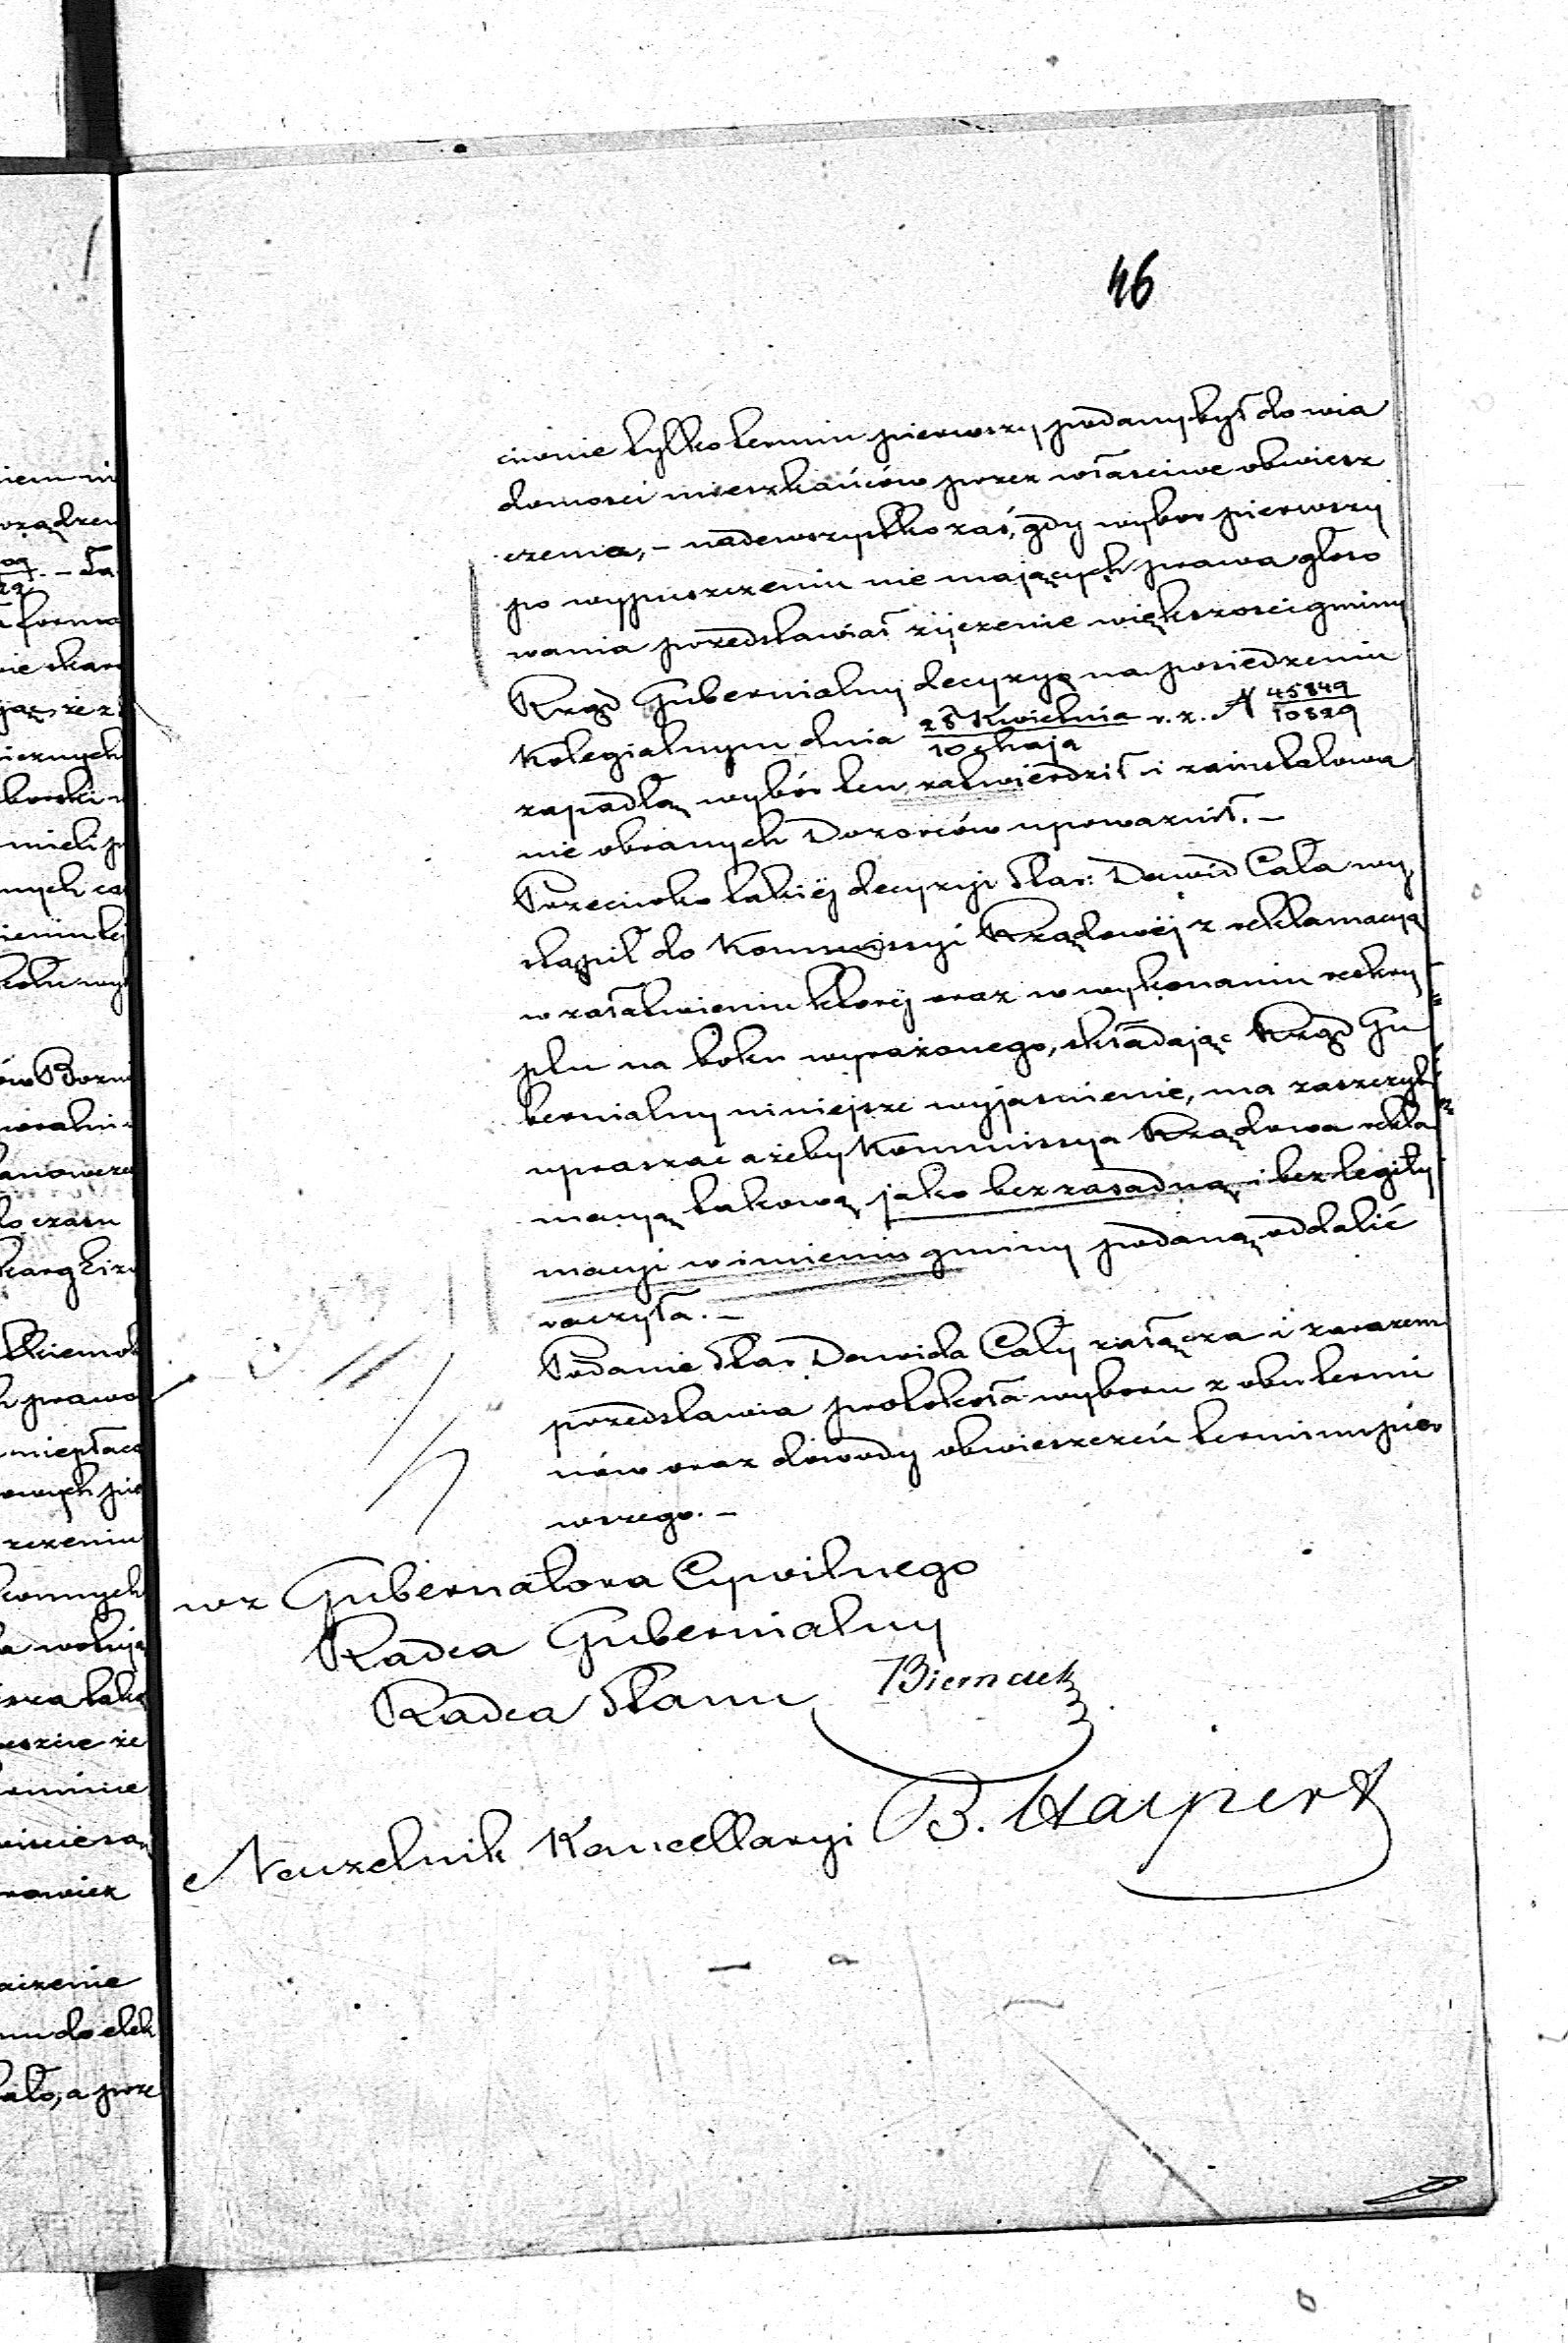 46
ciwnie tylko termin pierwszy podany był do wia
domosci mieszkańców przez własciwe obwiesz
czenia, – nadewszystko zaś, gdy wybor pierwszy
po wypuszczeniu nie mających prawa głoso
wania przedstawiał życzenie większosci gminy
Rząd Gubernialny decyzyą na posiedzeniu
Kolegialnym dnia 28 Kwietnia / 10 Maja r. z. N 45849 / 10829
zapadłą wybór ten zatwierdził i zainstalowa
nie obranych Dozorców upoważnił. –
Przeciwko takiéj decyzyi Star: Dawid Cała wy
stąpił do Kommissyi Rządowéj z reklamacyą
w załatwieniu któréj oraz w wykonaniu reskry
ptu na boku wyrażonego, składając Rząd Gu
bernialny niniejsze wyjasnienie, ma zaszczyt
upraszać ażeby Kommissya Rządowa rekla
macyą takową jako bezzasadną i bez legity
macyi w imieniu gminy podaną oddalić
raczyła. –
Podanie Star Dawida Cały załącza i zarazem
przedstawia protokoła wyboru z obu termi
nów oraz dowody obwieszczeń terminu pier
wszego. –
wz Gubernatora Cywilnego
Radca Gubernialny
Radca Stanu Biernack
Naczelnik Kancellaryi B. Halpert